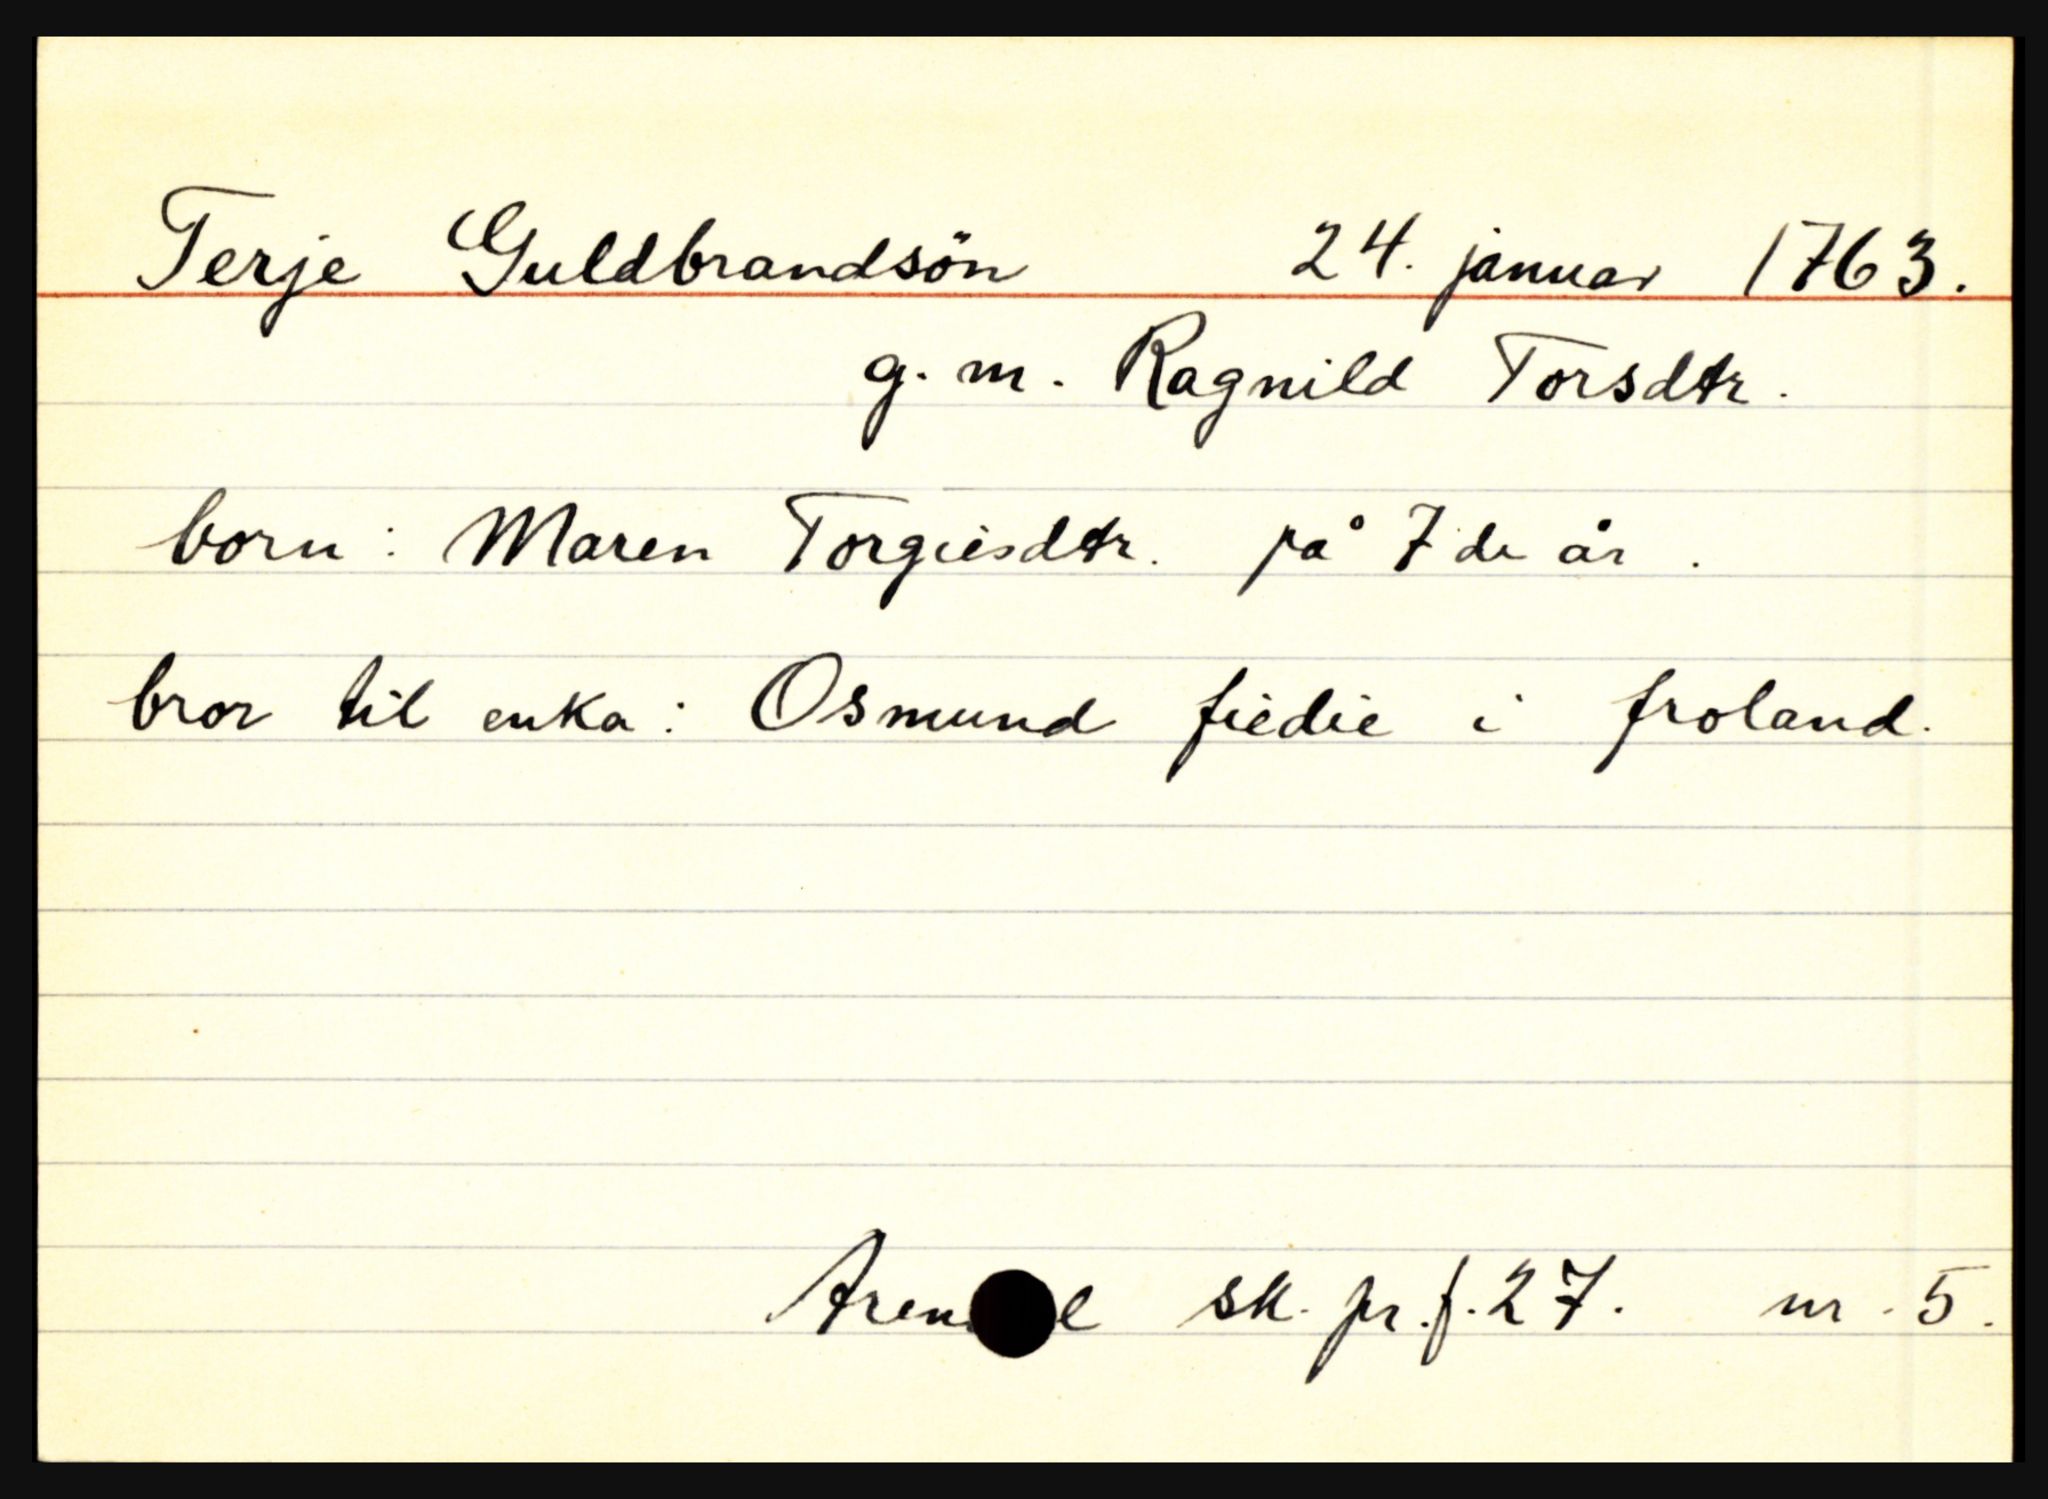 Terje Guldbrandsön 24. januar 1763.
g. m. Ragnild Torsdtr.
born: Maren Torgiesdtr. på 7de år.
bror til enka: Osmund fiedie i froland.
sk. pr. f. 27. nr. 5.